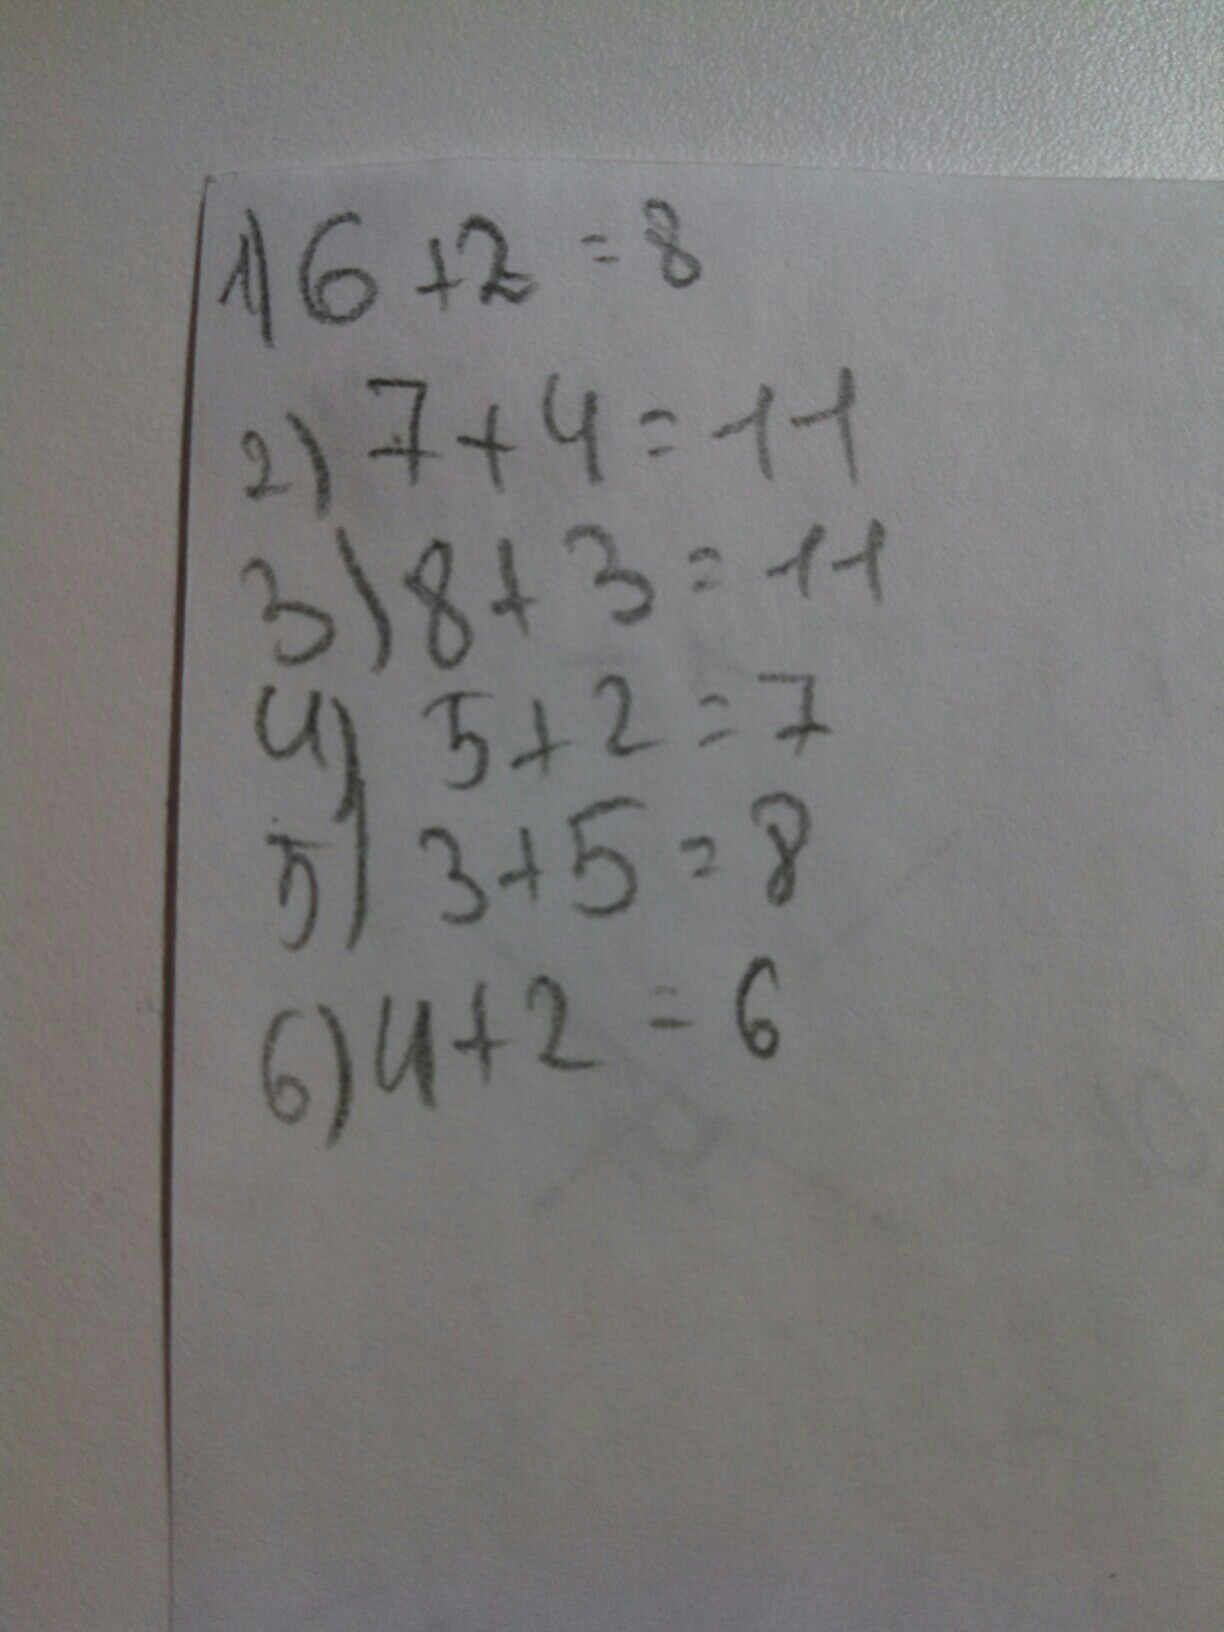 1) 6 + 2 = 8
2) 7 + 4 = 11
3) 8 + 3 = 11
4) 5 + 2 = 7
5) 3 + 5 = 8
6) 4 + 2 = 6